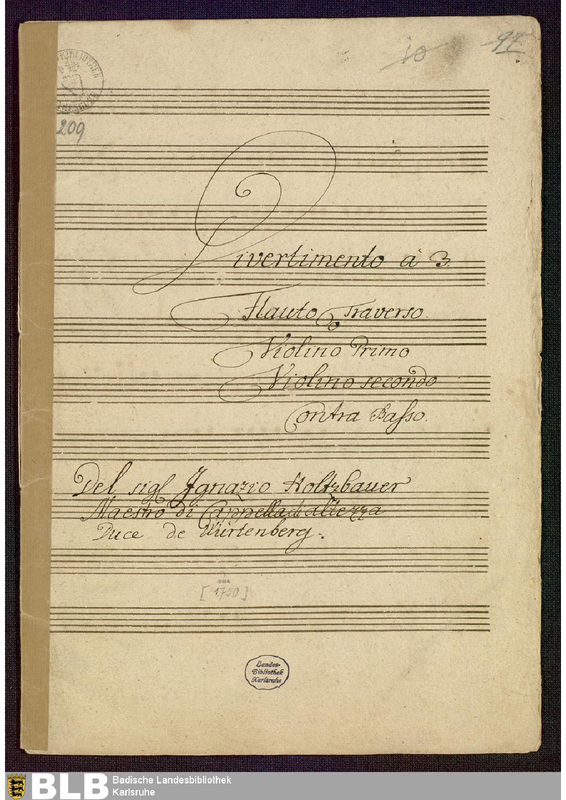 10
209
Divertimento à 3.
Flauto Traverso.
Violino Primo
Violino secondo
Contra Basso.
Del sigl Ignazio Holtzbauer
Maestro di Cappella di altezza
Duce de Würtenberg.
[1700]
Landes-
Bibliothek
Karlsruhe
BLB
Badische Landesbibliothek
Karlsruhe